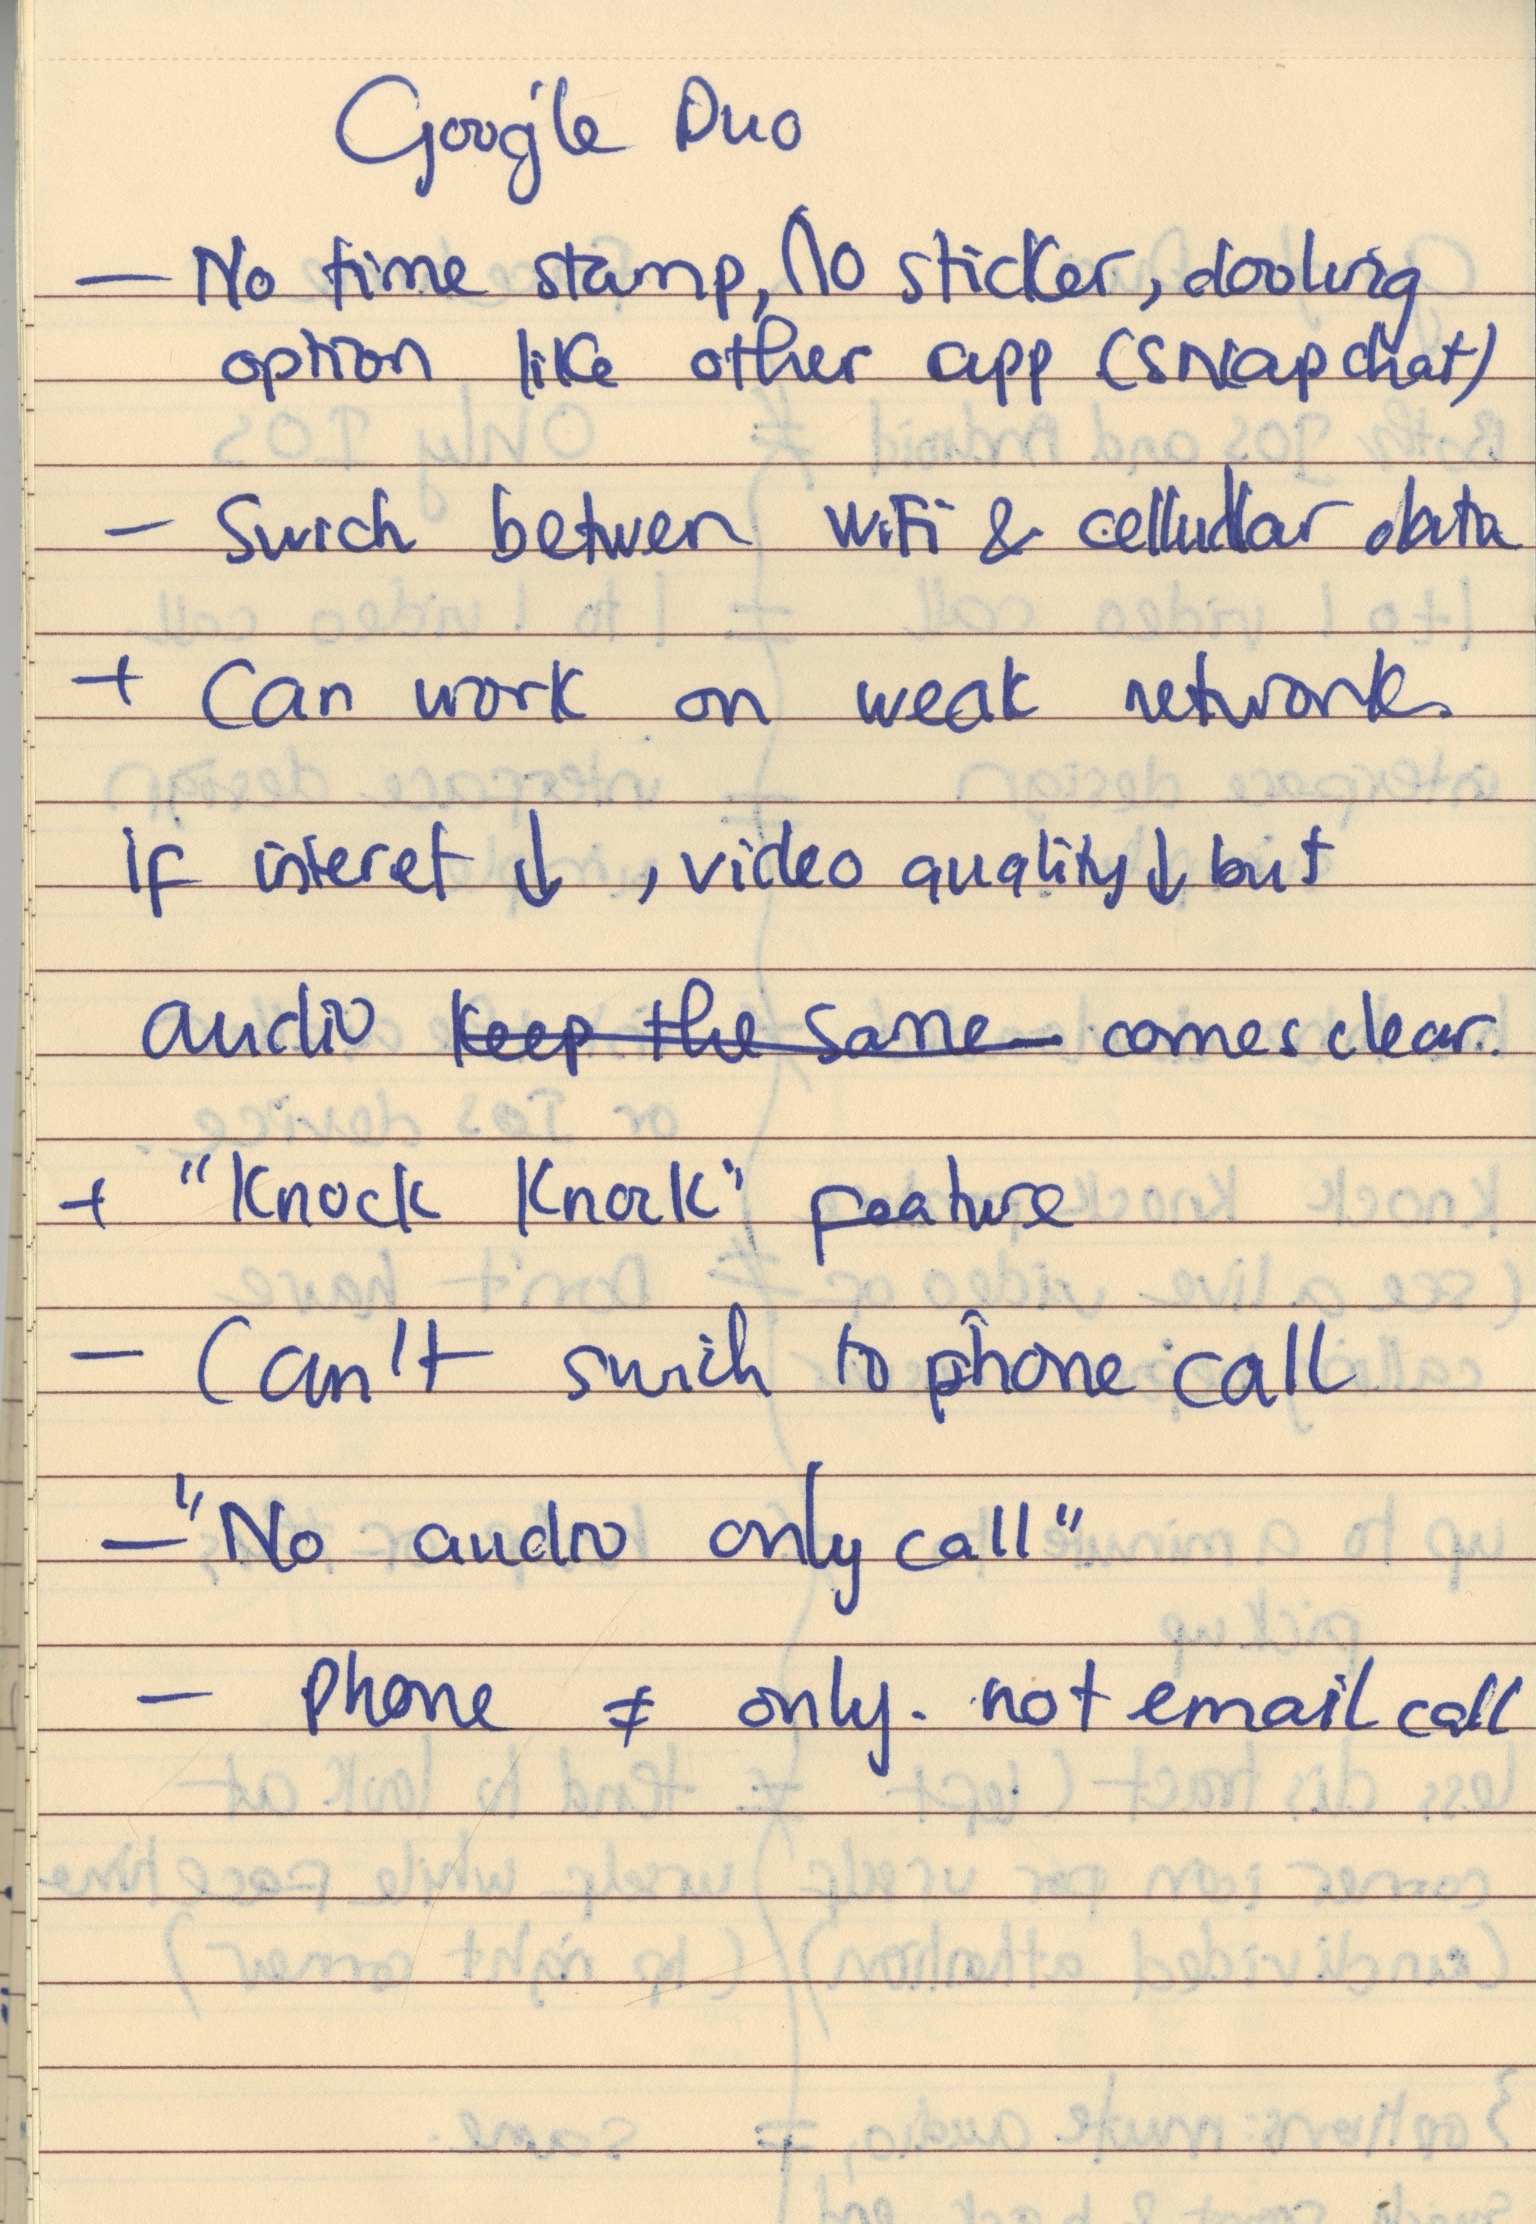 Google Duo
– No time stamp, No sticker, dooling
option like other app (snapchat)
– Swich betwen WiFi & cellullar data
+ Can work on weak network.
if interet ↓, video quality ↓ but
audio keep the same comes clear.
+ "Knock Knock" feature
– Can't swich to phone call
– "No audio only call"
– phone ≠ only. not email call